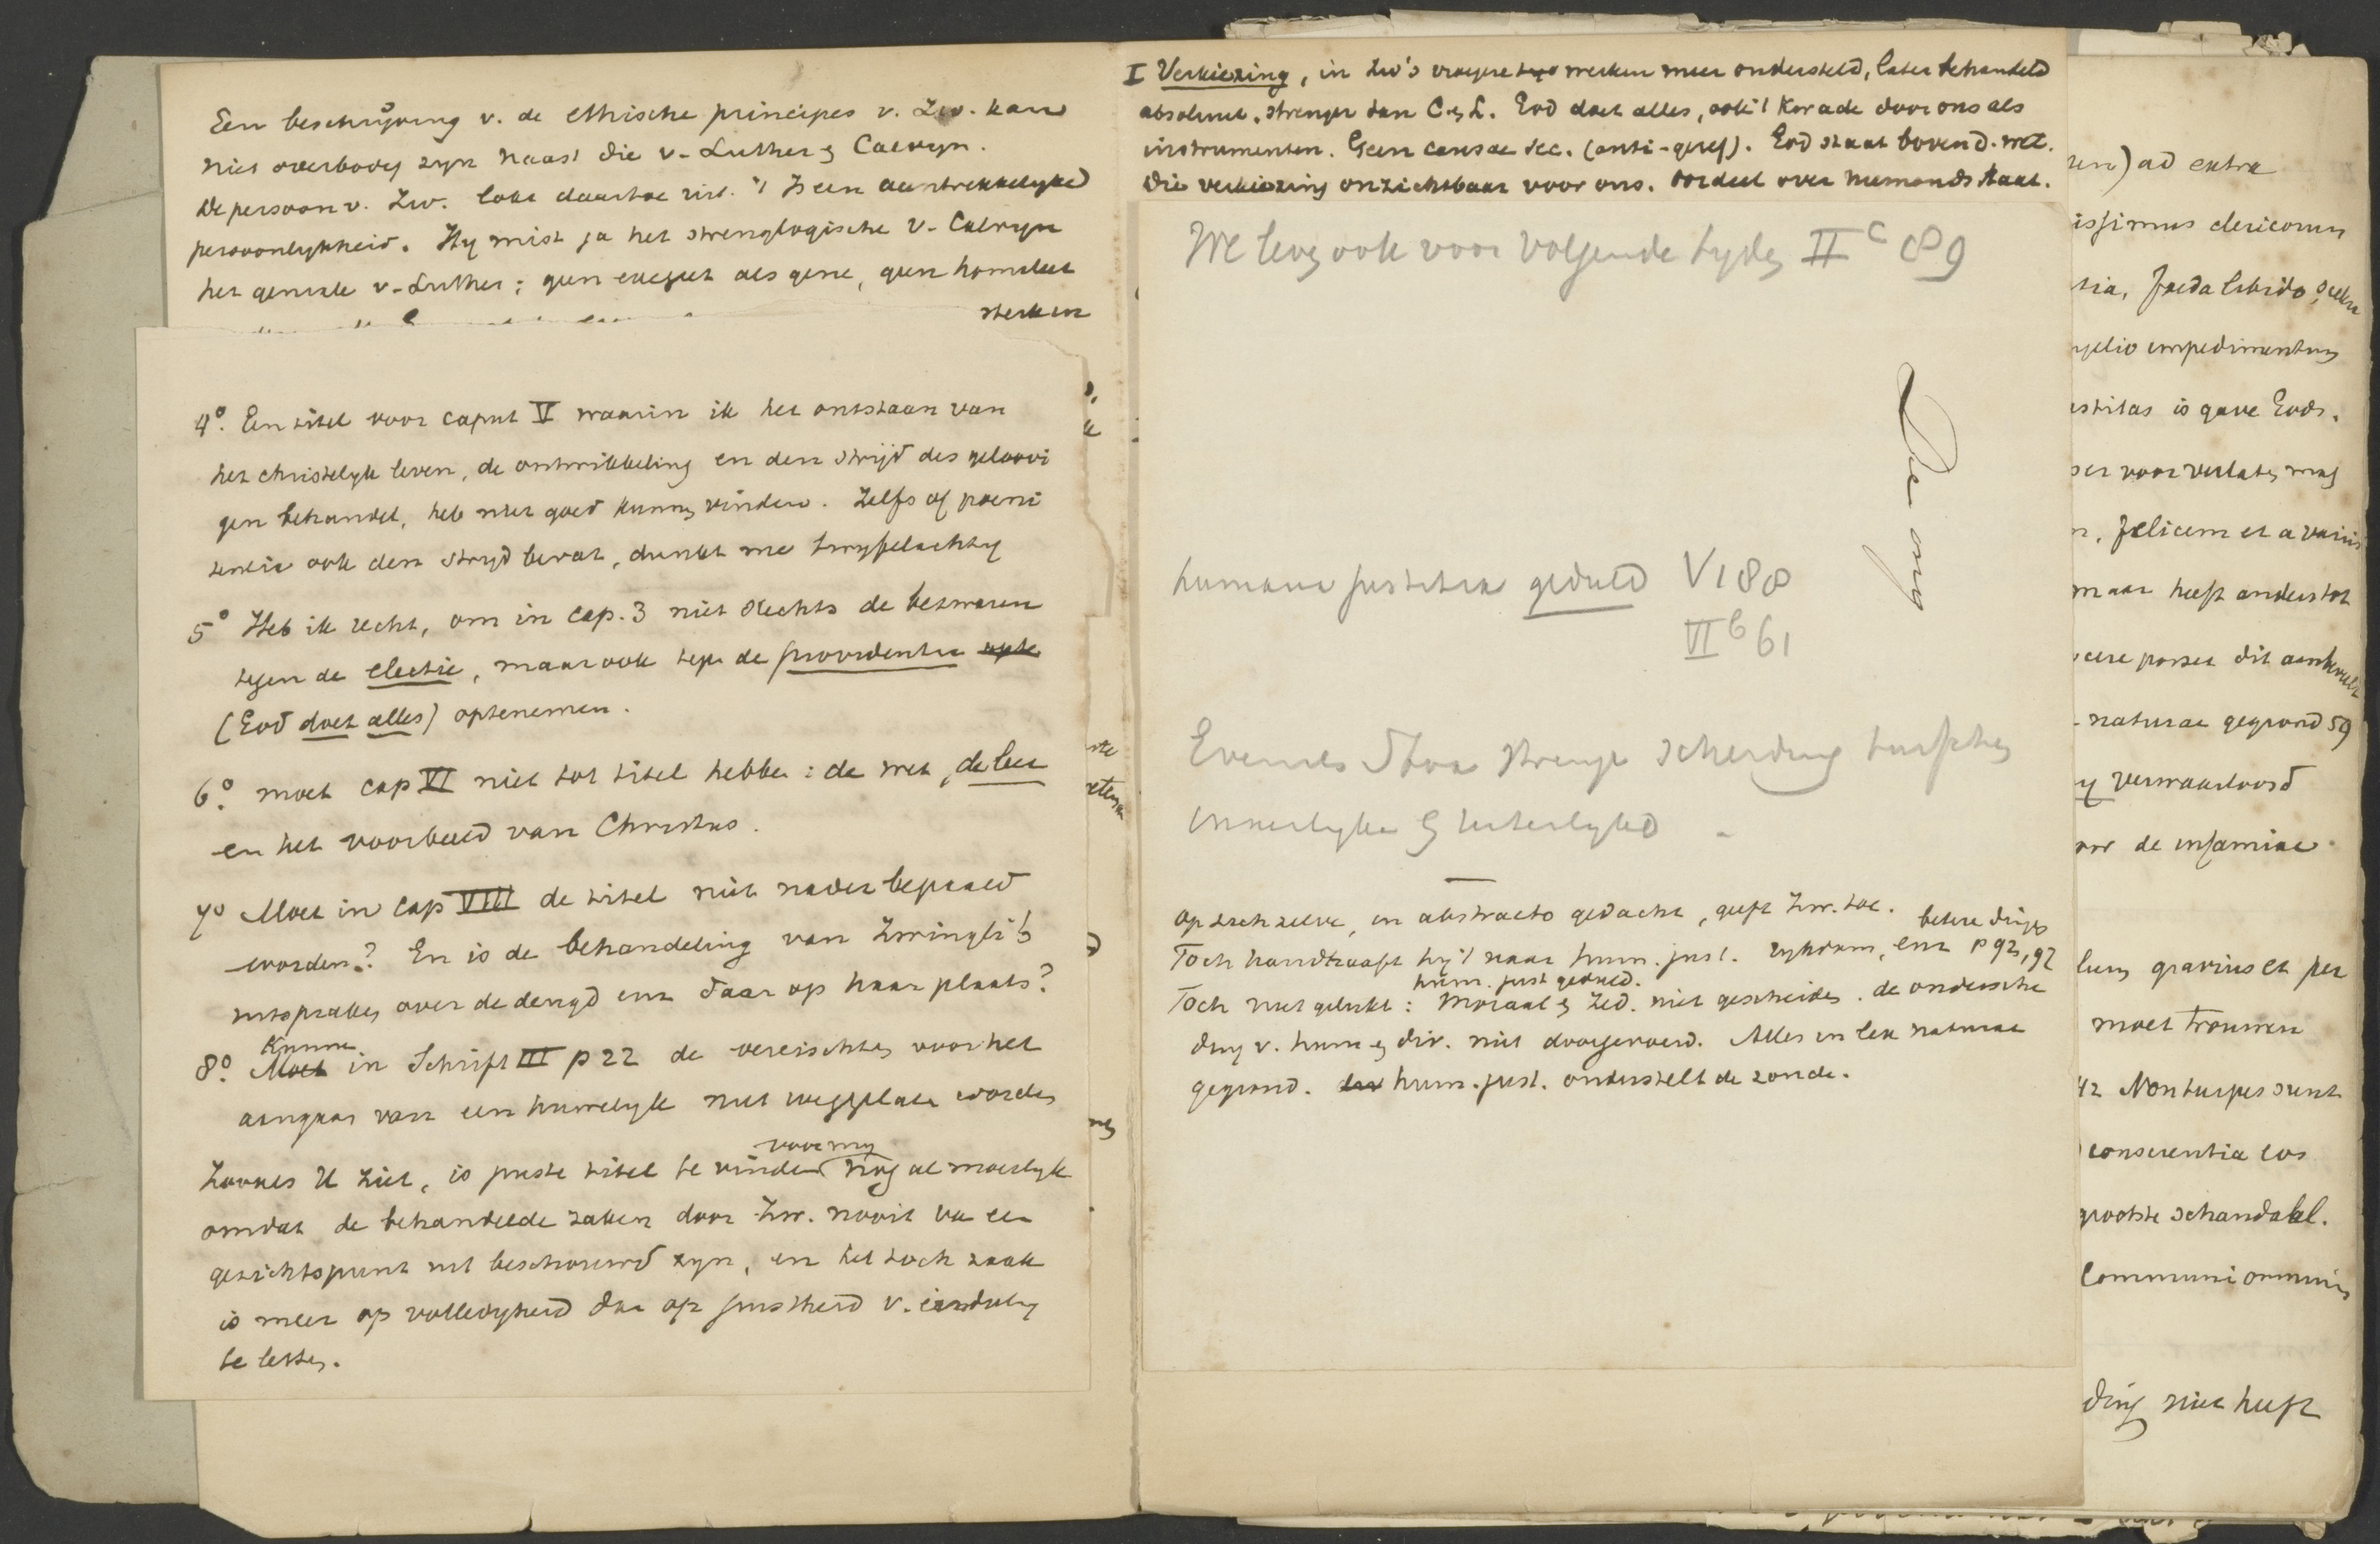 Een beschrijving v. de ethische principes v. Zw. kan
niet overbodig zyn naast die v. Luther & Calvyn.
De persoon v. Zw. lokt daartoe uit. 't Is een aantrekkelyke
persoonlykheid. Hy mist ja het strenglogische v. Calvyn
het geniale v. Luther; geen exegeet als gene, geen homileet
sterken
4º. Een titel voor caput V waarin ik het ontstaan van
het christelyk leven, de ontwikkeling en den strijd des geloovi
gen behandel, heb niet goed kunnen vinden. Zelfs of poeni
tentie ook den stryd bevat, dunkt me twyfelachtig
5º Heb ik recht, om in cap. 3 niet slechts de bezwaren
tegen de electie, maar ook tegen de providentia
(God doet alles) optenemen.
6º. moet cap VI niet tot titel hebben: de wet, de leer
en het voorbeeld van Christus.
7º Moet in cap VIII de titel niet nader bepaald
worden? En is de behandeling van Zwingli's
uitspraken over de deugd enz daar op haar plaats?
8º. Kunnen in Schrift III p 22 de vereischten voor het
aangaan van een huwelyk niet weggelaten worden
Zooals U ziet, is juiste titel te vinden voor my nog al moeilyk
omdat de behandelde zaken door Zw. nooit van een
gezichtspunt uit beschouwd zyn, en het toch zaak
is meer op volledigheid dan op juistheid v. indeeling
te letten.
I Verkiezing, in Zw's vroegere werken meer ondersteld, later behandeld
absoluut, strenger dan C. & L. God doet alles, ook 't kwade door ons als
instrumenten. Geen causae sec. (anti-geref). God staat boven d. wet.
Die verkiezing onzichtbaar voor ons. Oordeel over niemands staat.
We leven ook voor volgende tyden II c 89
De ong
humana justitia geduld VI 88
VI b 61
Evenals Stoa strenge scheiding tusschen
innerlyke & uiterlyke
op zich zelve, in abstracto gedacht, geeft Zw. toe.
Toch handhaaft hy 't naar hum. just. rykdom, enz p 92, 92 betere dingen
Toch niet gelukt: Moraal & Zed. niet gescheiden. de ondersche
hum. just geduld.
ding v. hum & div. niet doorgevoerd. Alles in lex naturae
gegrond. hum. just. onderstelt de zonde.
) ad extra
issimus clericorum
foeda libido
impedimentum
is gave Gods.
voor verlaten mag
felicem et a variis
maar heeft anders tot
posset dit
naturae gegrond 59
verwaarloosd
de infamiae
gravius et per
moet trouwen
42 Non turpes sunt
conscientia eos
grootste schandaal.
communi omnium
ding niet heeft